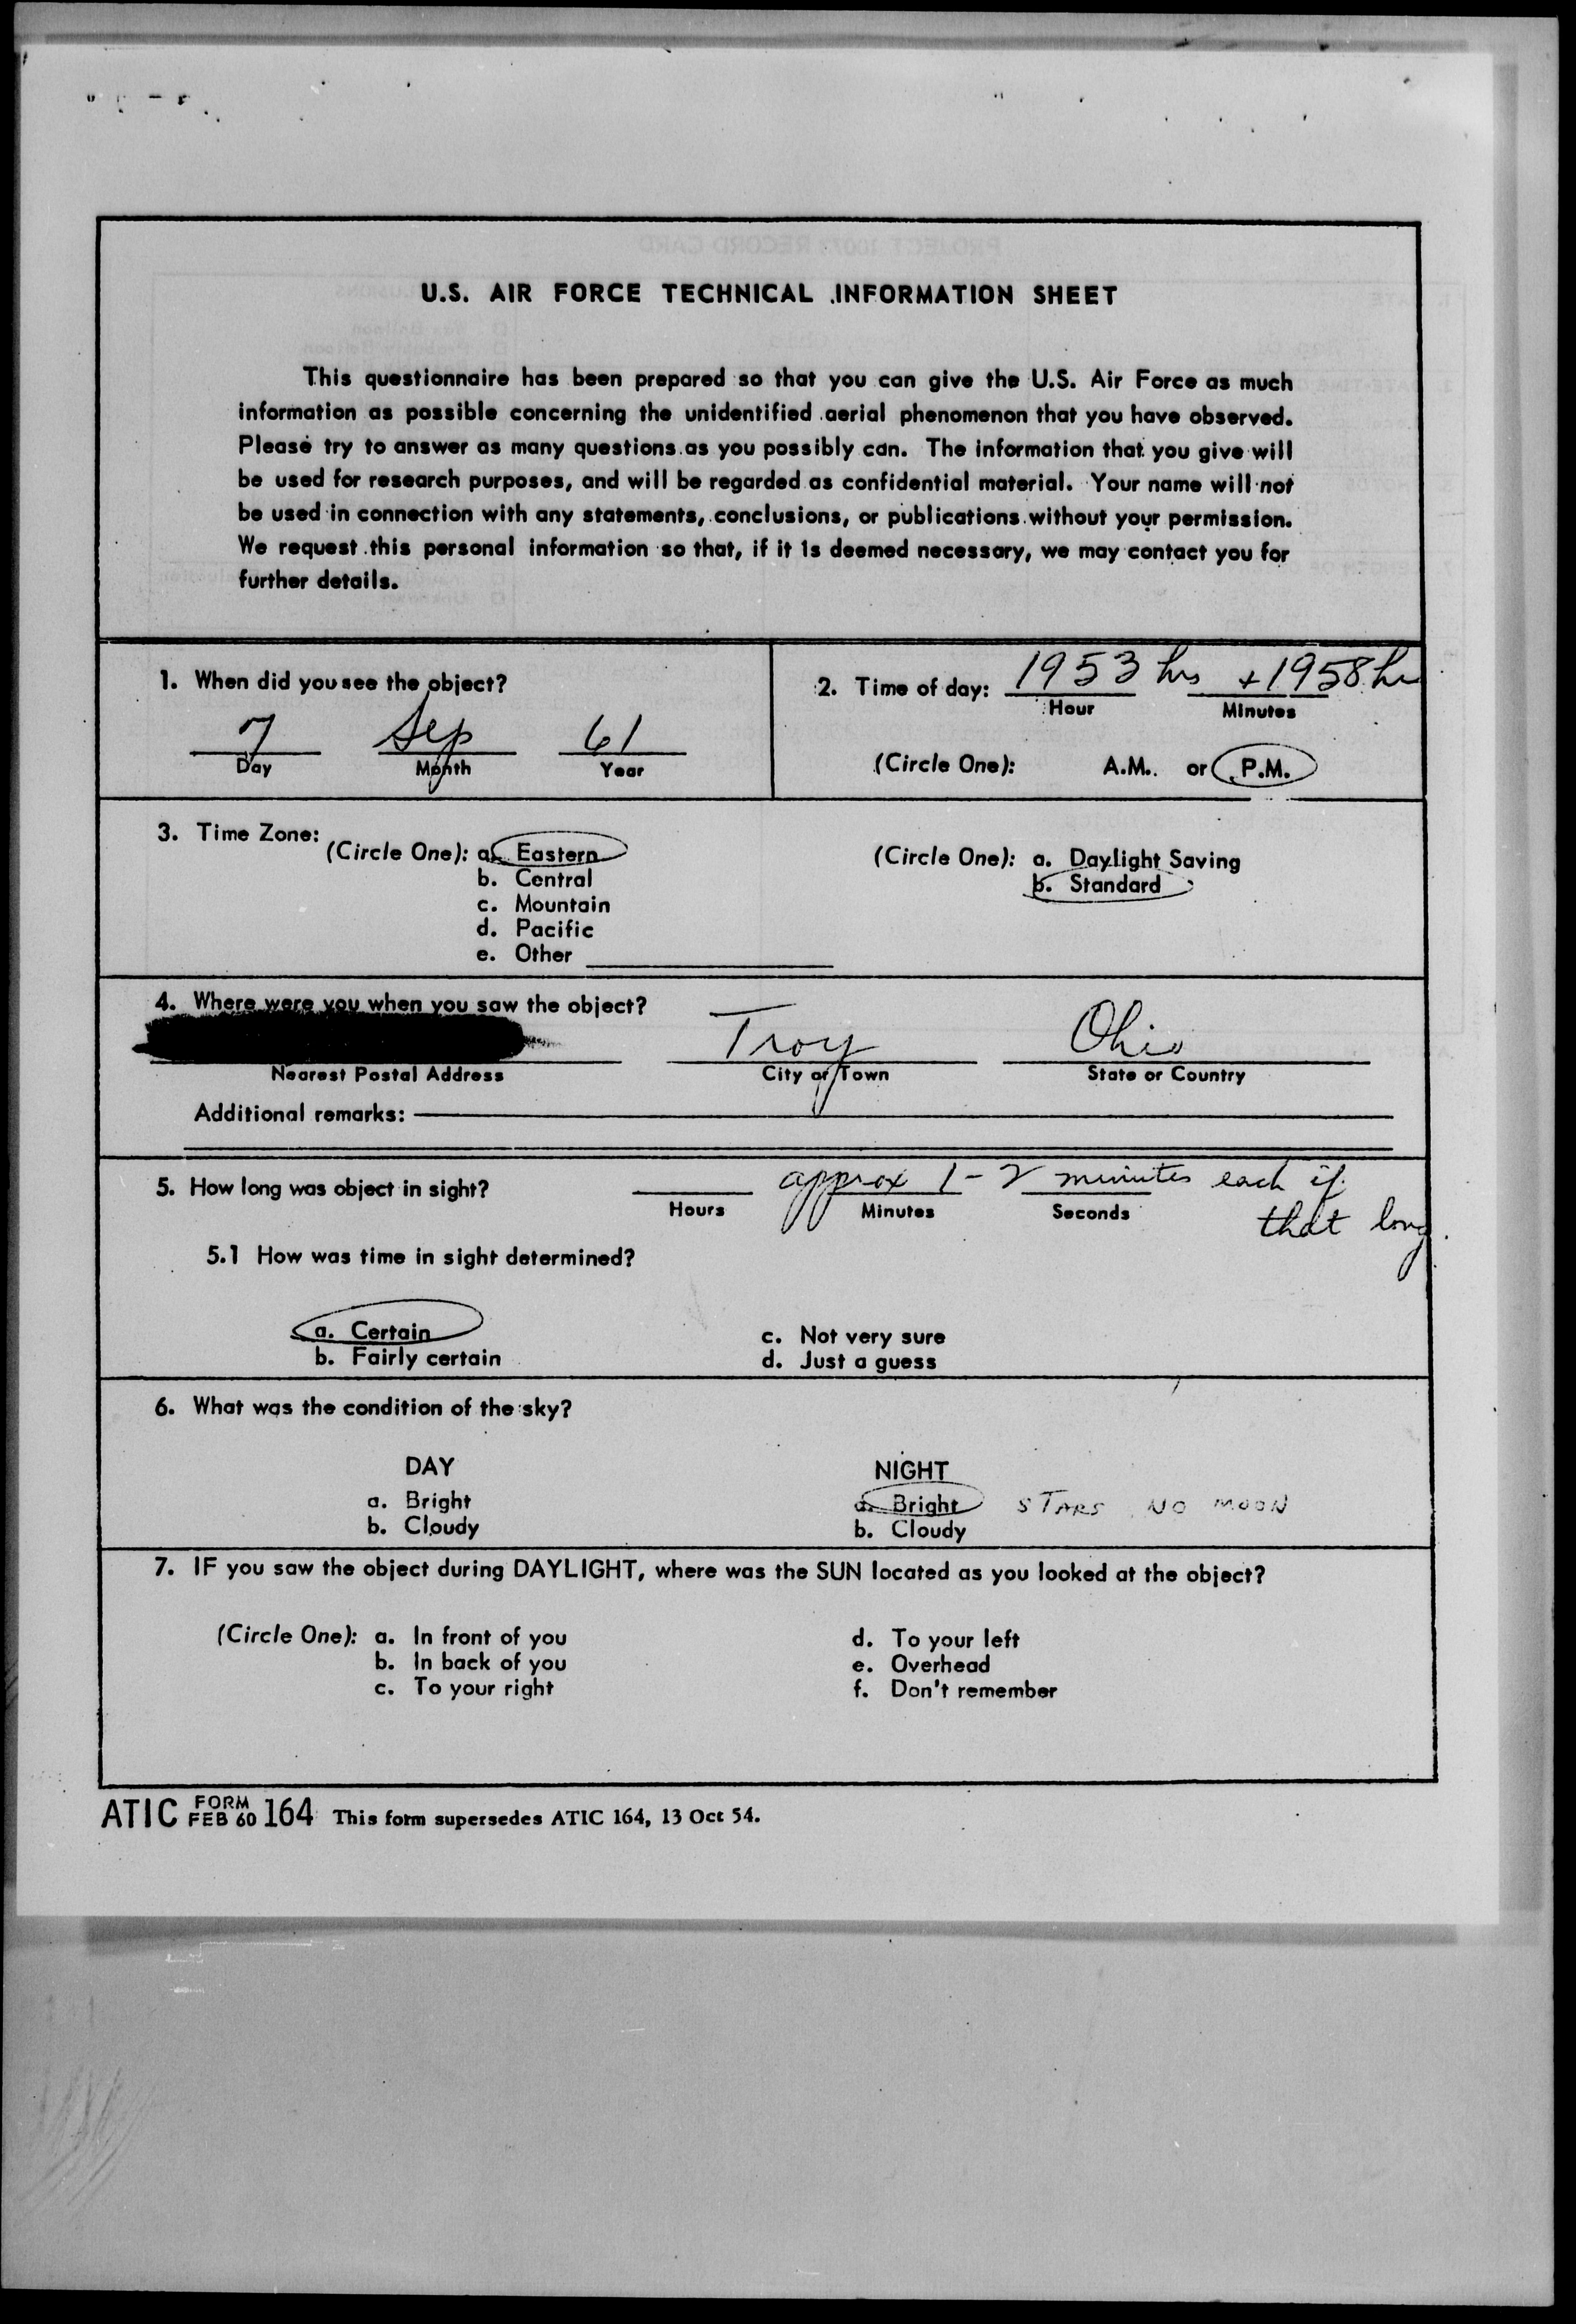 U.S. AIR FORCE TECHNICAL INFORMATION SHEET
This questionnaire has been prepared so that you can give the U.S. Air Force as much
information as possible concerning the unidentified aerial phenomenon that you have observed.
Please try to answer as many questions as you possibly can. The information that you give will
be used for research purposes, and will be regarded as confidential material. Your name will not
be used in connection with any statements, conclusions, or publications without your permission.
We request this personal information so that, if it is deemed necessary, we may contact you for
further details.
1. When did you see the object?
7 Sep 61
Day Month Year
2. Time of day: 1953 hrs + 1958 hr
Hour Minutes
(Circle One): A.M. or P.M.
3. Time Zone:
(Circle One): a. Eastern
b. Central
c. Mountain
d. Pacific
e. Other
(Circle One): a. Daylight Saving
b. Standard
4. Where were you when you saw the object?
Troy Ohio
Nearest Postal Address City or Town State or Country
Additional remarks:
5. How long was object in sight? approx 1-2 minutes each if
that long.
Hours Minutes Seconds
5.1 How was time in sight determined?
a. Certain
b. Fairly certain
c. Not very sure
d. Just a guess
6. What was the condition of the sky?
DAY
a. Bright
b. Cloudy
NIGHT
a. Bright STARS NO MOON
b. Cloudy
7. IF you saw the object during DAYLIGHT, where was the SUN located as you looked at the object?
(Circle One): a. In front of you
b. In back of you
c. To your right
d. To your left
e. Overhead
f. Don't remember
ATIC FORM FEB 60 164 This form supersedes ATIC 164, 13 Oct 54.